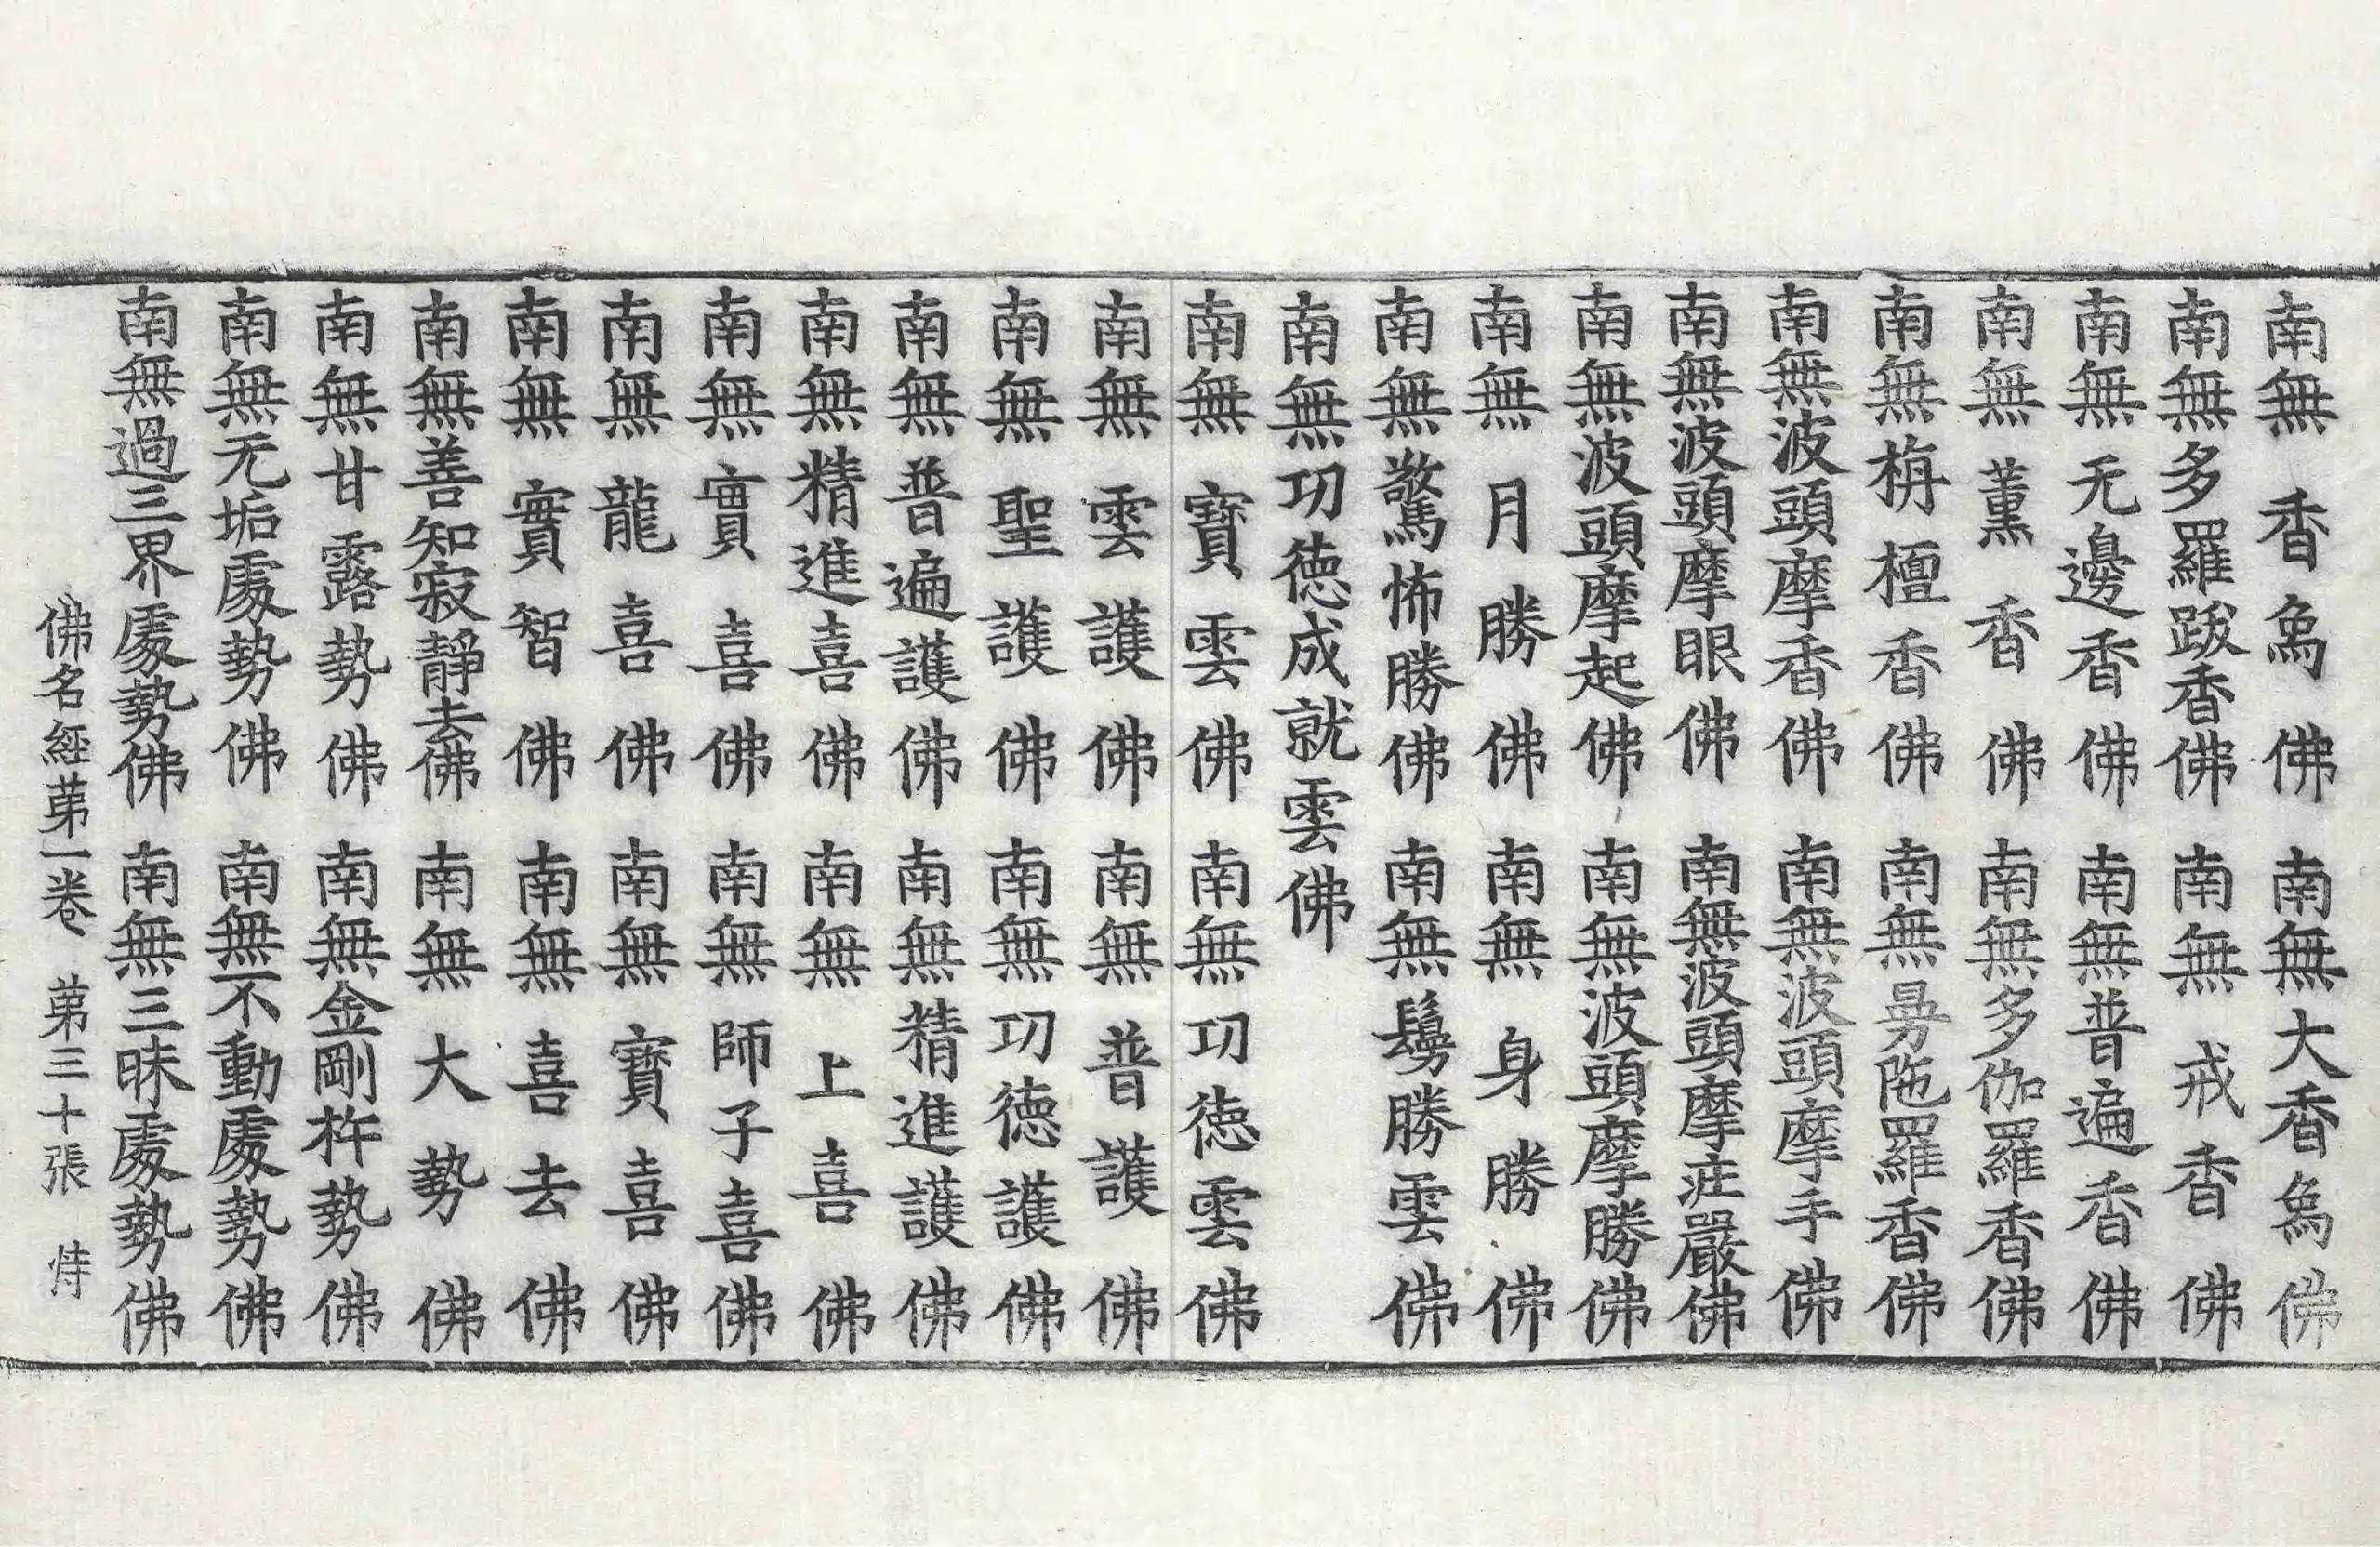 南無香象佛南無大香象佛
南無多羅跋香佛南無戒香佛
南無无邊香佛南無普遍香佛
南無薰香佛南無多伽羅香佛
南無栴檀香佛南無曼陁羅香佛
南無波頭摩香佛南無波頭摩手佛
南無波頭摩眼佛南無波頭摩庄嚴佛
南無波頭摩起佛南無波頭摩勝佛
南無月勝佛南無身勝佛
南無驚怖勝佛南無鬘勝雲佛
南無功德成就雲佛
南無寶雲佛南無功德雲佛
南無雲護佛南無普護佛
南無聖護佛南無功德護佛
南無普遍護佛南無精進護佛
南無精進喜佛南無上喜佛
南無實喜佛南無師子喜佛
南無龍喜佛南無寶喜佛
南無實智佛南無喜去佛
南無善知寂靜去佛南無大勢佛
南無甘露勢佛南無金剛杵勢佛
南無无垢處勢佛南無不動處勢佛
南無過三界處勢佛南無三昧處勢佛
佛名經第一卷 第三十張 恃